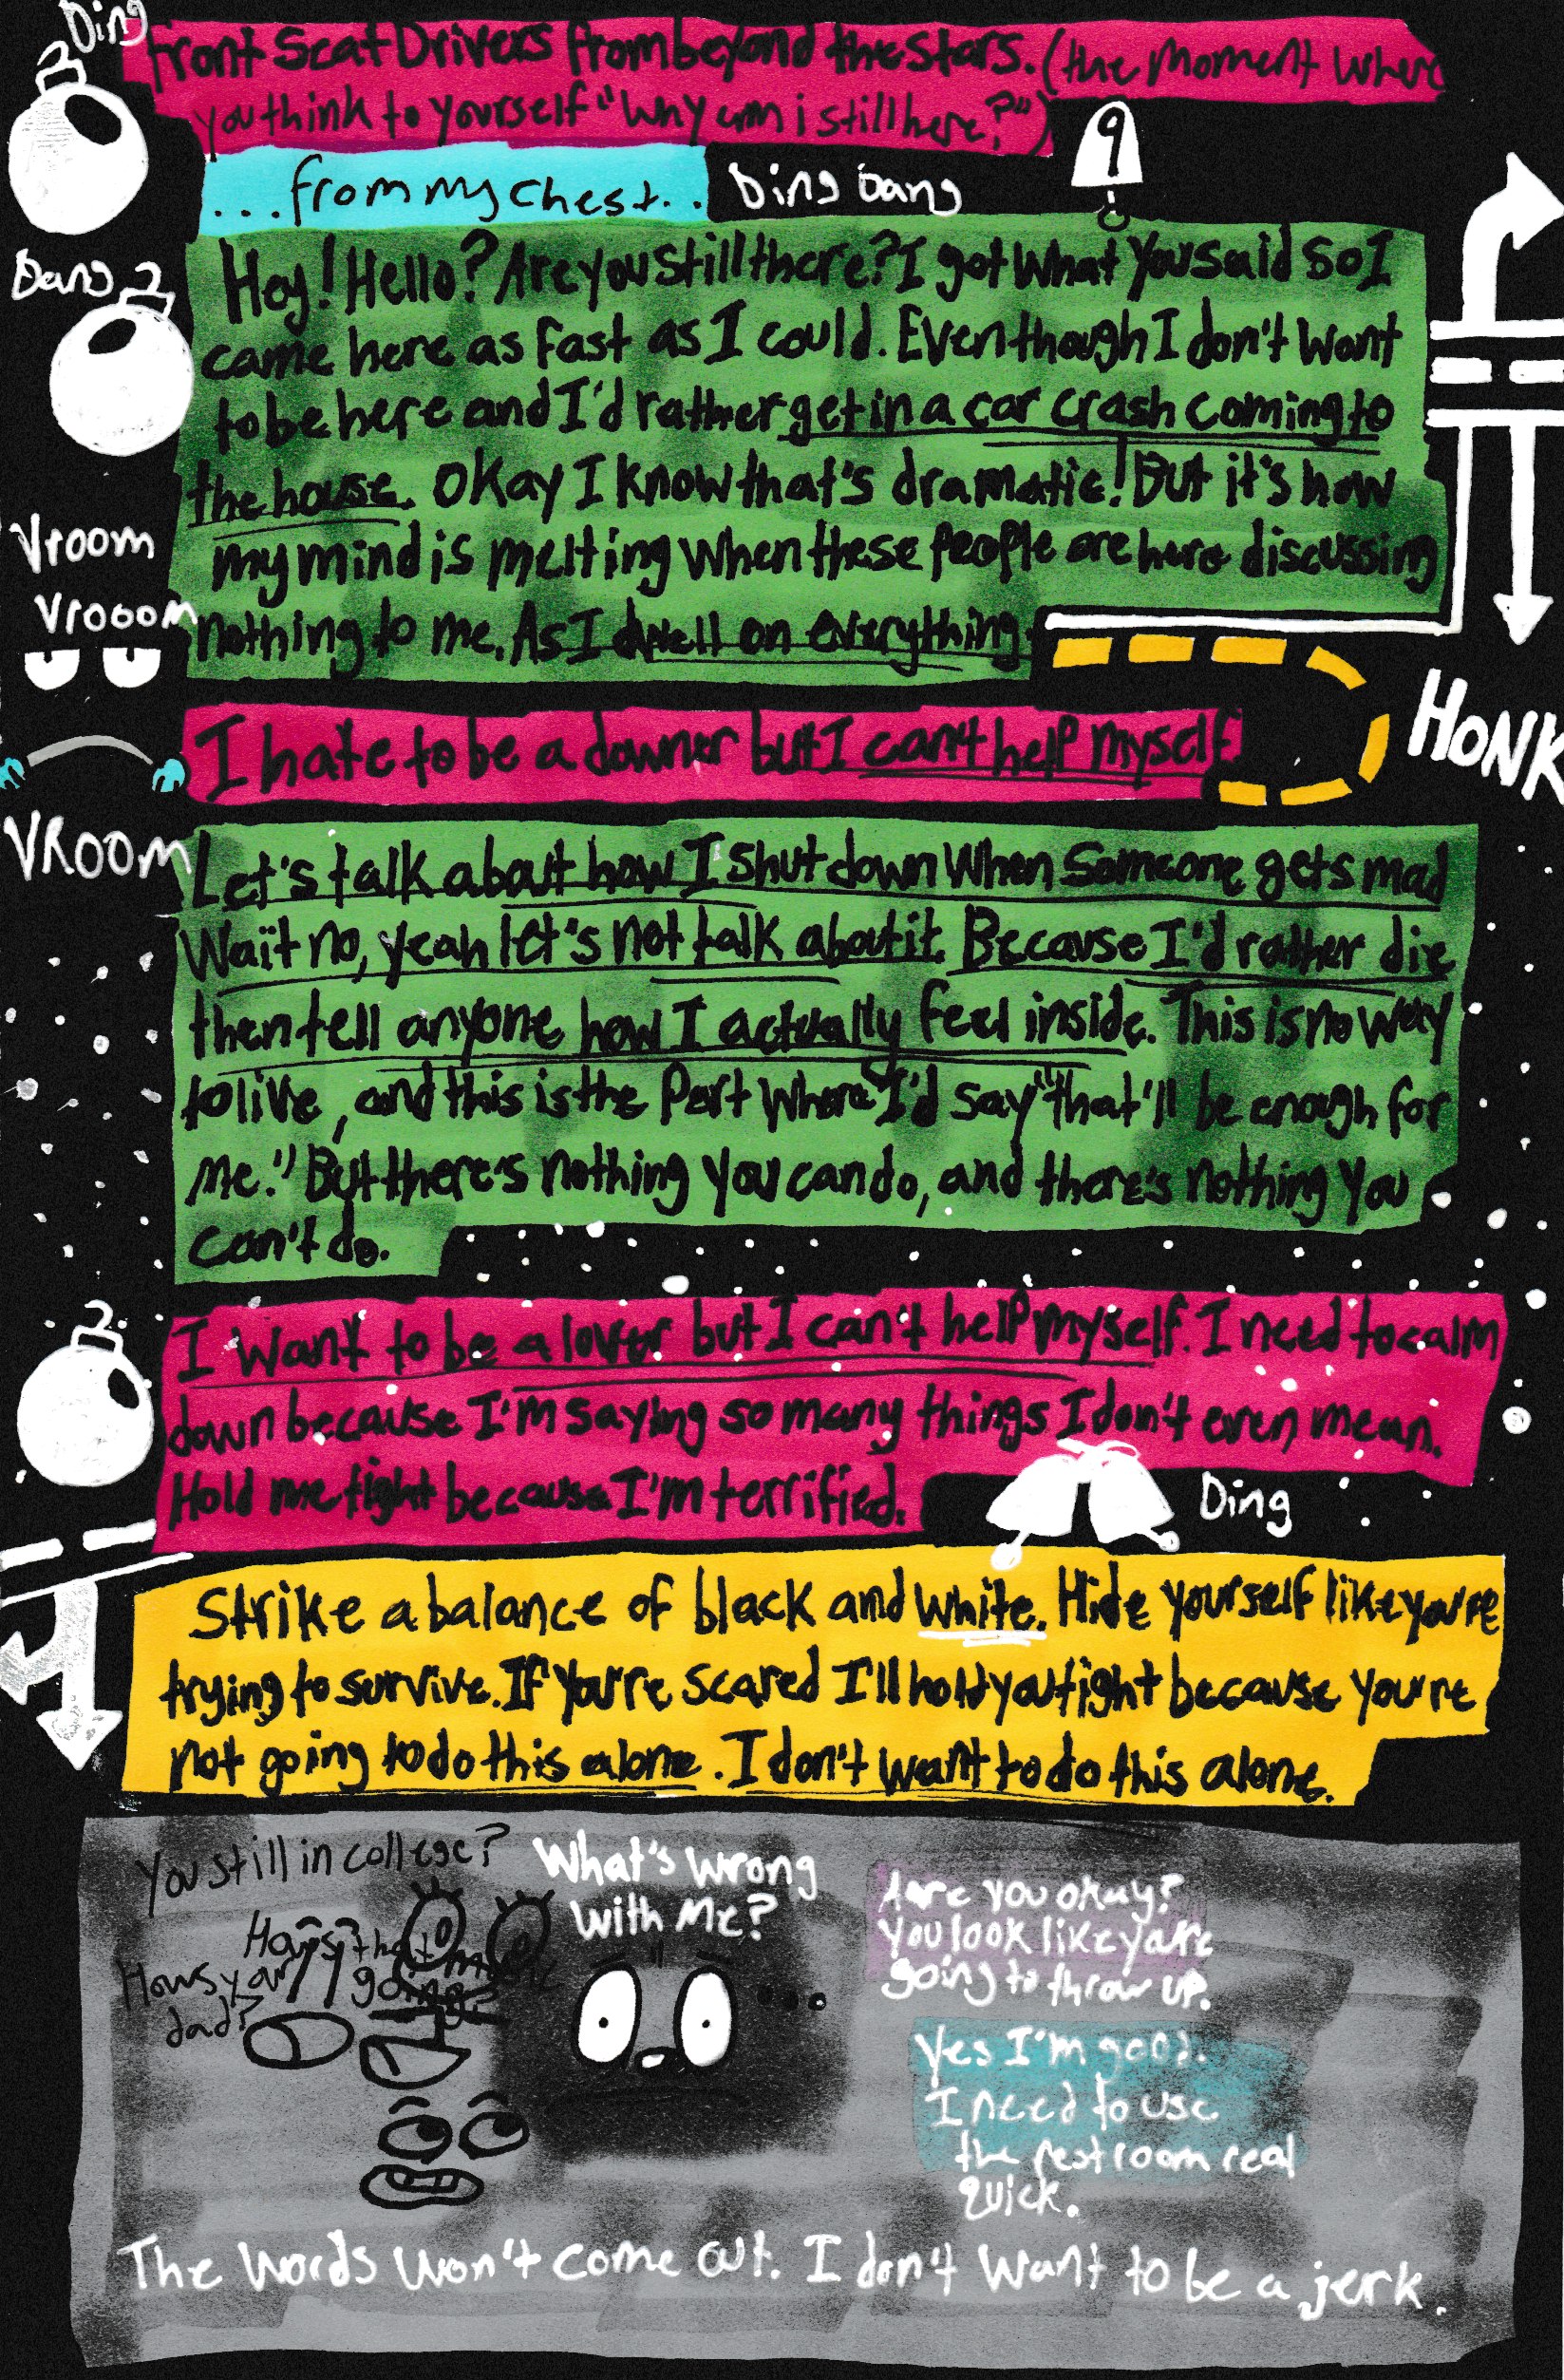 Ding
Front Seat Drivers from beyond the stars. (the moment where
you think to yourself "Why am i still here?")
9
...from my chest...
Ding Dang
Dang
Hey! Hello? Are you still there? I got what you said so I
came here as fast as I could. Even though I don't want
to be here and I'd rather get in a car crash coming to
the house. Okay I know that's dramatic! But it's how
my mind is melting when these people are here discussing
nothing to me. As I dwell on everything.
Vroom
Vrooom
HONK
I hate to be a downer but I can't help myself.
VROOM
Let's talk about how I shut down when someone gets mad
Wait no, yeah let's not talk about it. Because I'd rather die
then tell anyone how I actually feel inside. This is no way
to live, and this is the part where I'd say "that'll be enough for
me." But there's nothing you can do, and there's nothing you
can't do.
I want to be a lover but I can't help myself. I need to calm
down because I'm saying so many things I don't even mean.
Hold me tight because I'm terrified.
Ding
Strike a balance of black and white. Hide yourself like you're
trying to survive. If you're scared I'll hold you tight because you're
not going to do this alone. I don't want to do this alone.
You still in college?
How's that music
going?
Hows your
dad?
What's wrong
with Me?
...
Are you okay?
You look like y are
going to throw up.
Yes I'm good.
I need to use
the restroom real
quick.
The words won't come out. I don't want to be a jerk.